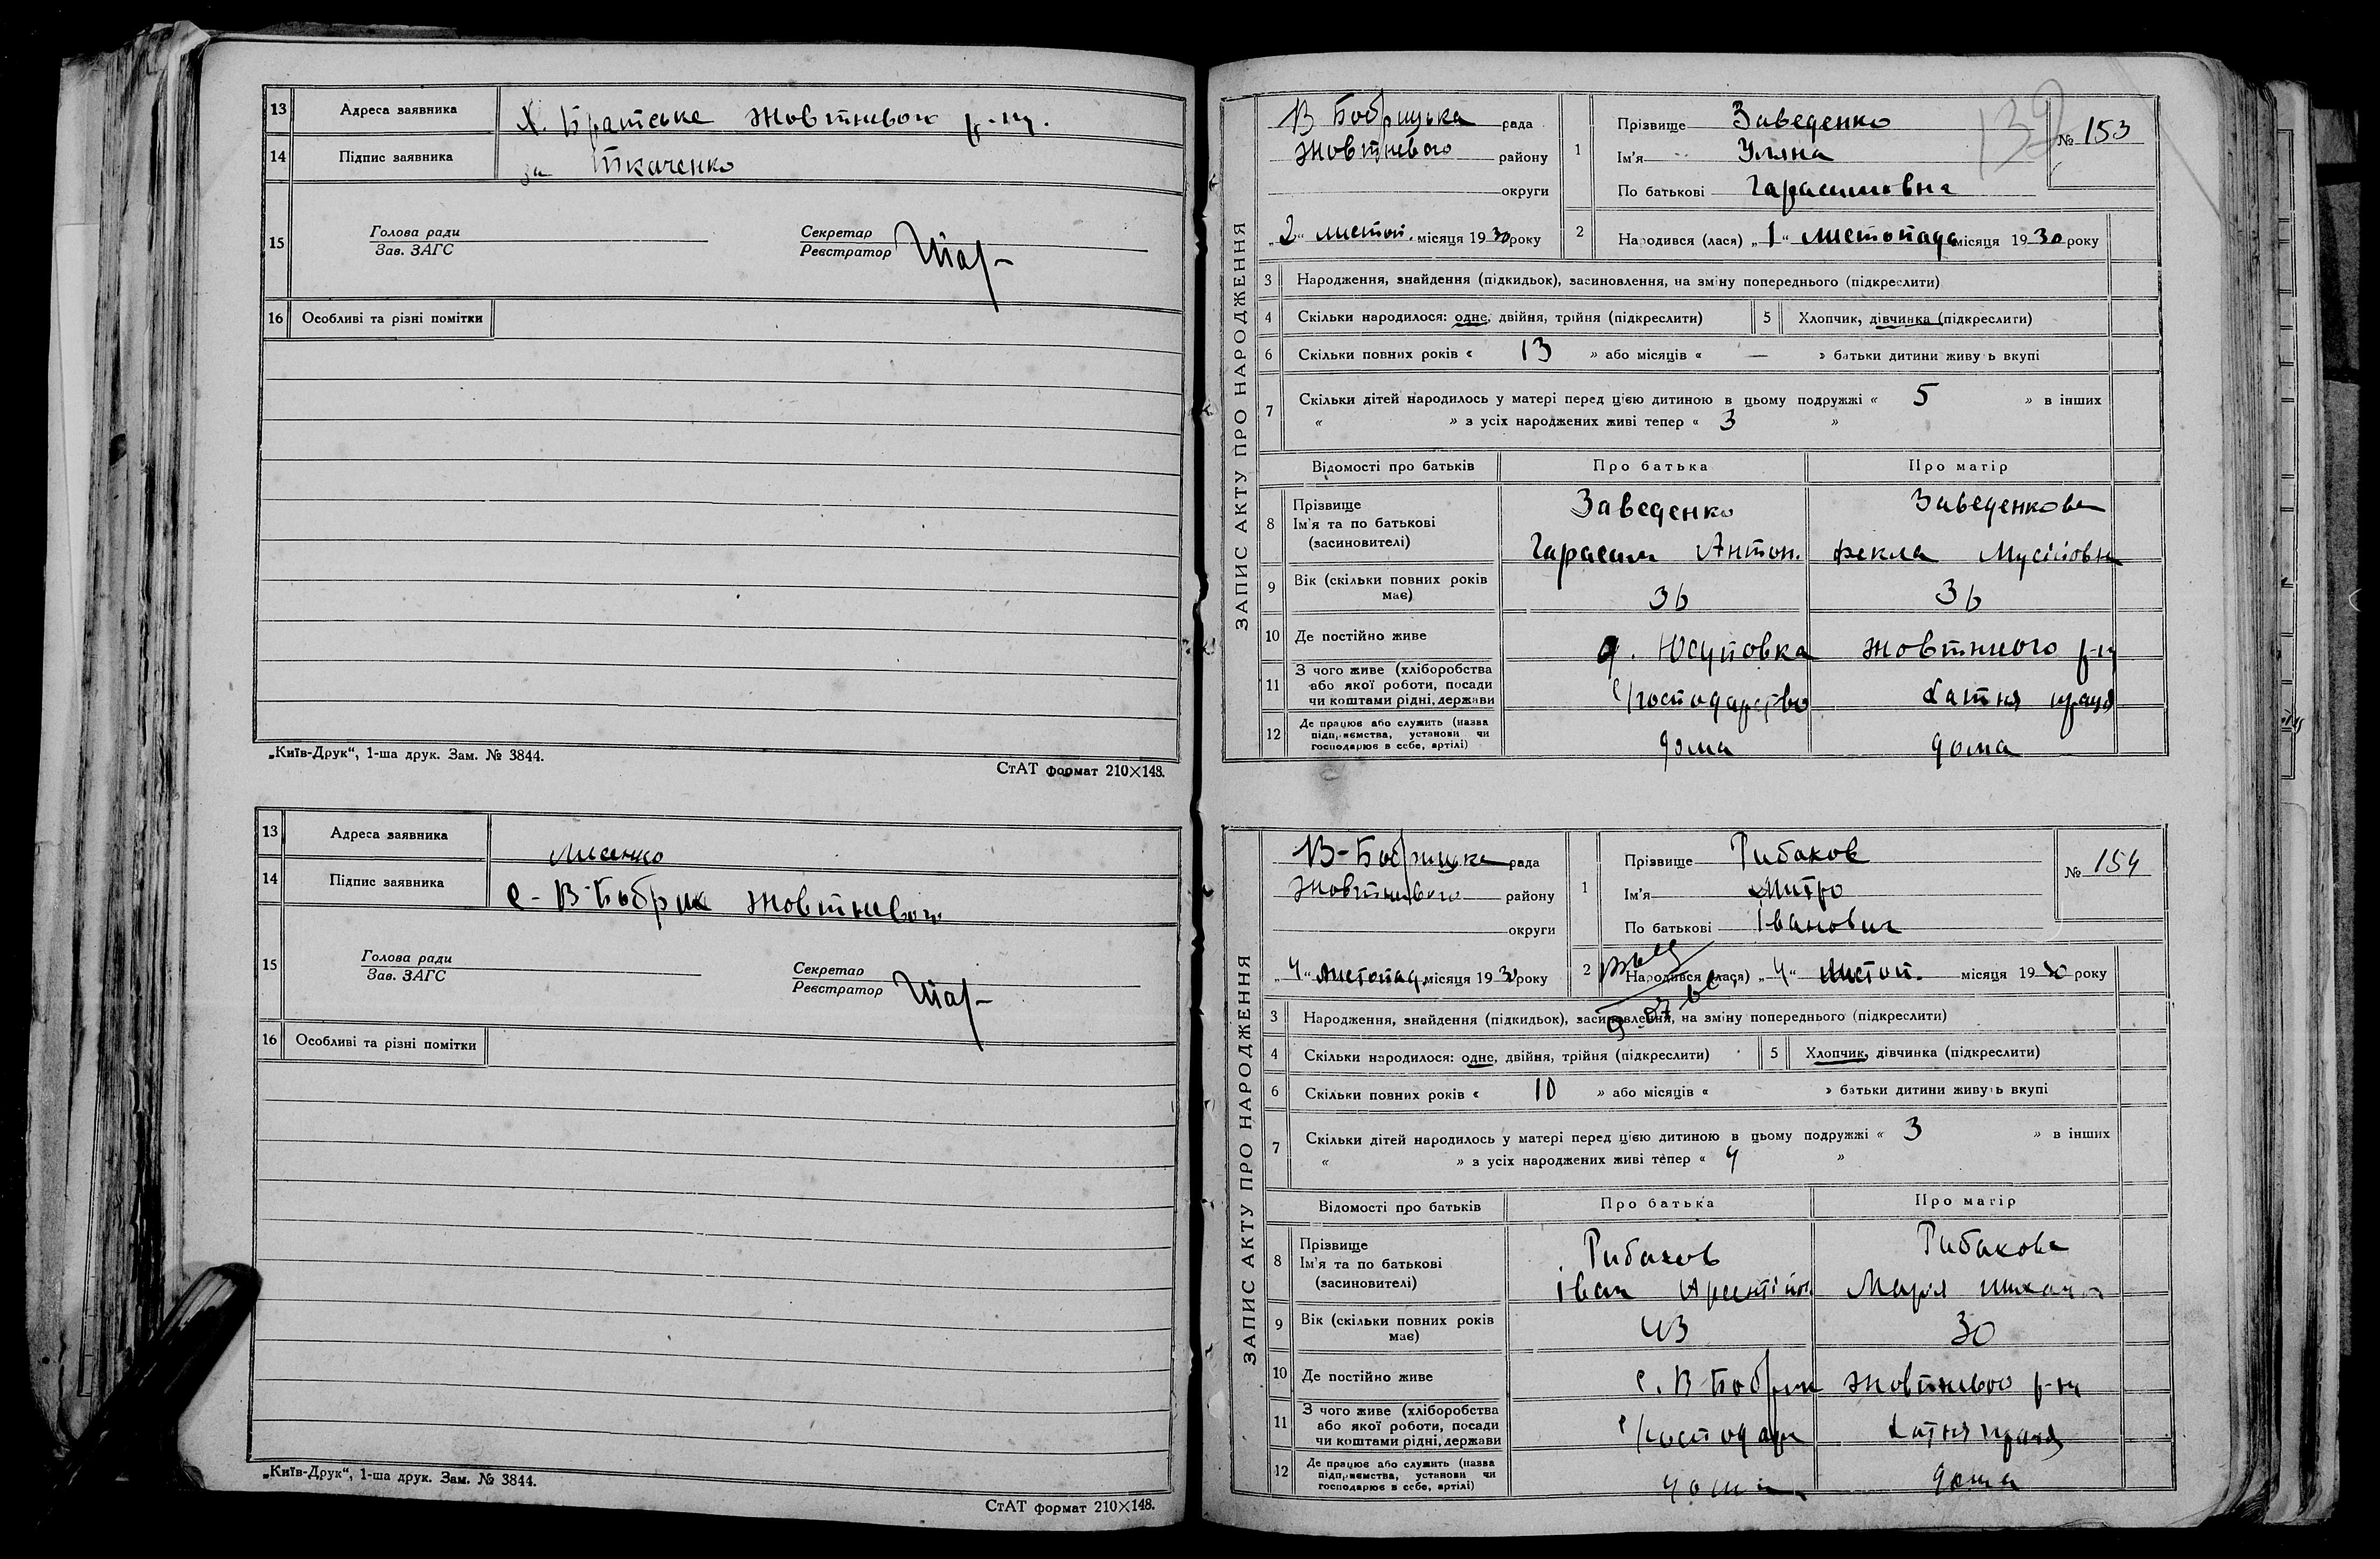 13 Адреса заявника Х. Братське Жовтневого р-ну.
14 Підпис заявника за Ткаченко
15 Голова ради
Зав. ЗАГС
Секретар
Реєстратор
16 Особливі та різні помітки
„Київ-Друк“, 1-ша друк. Зам. № 3844.
СтАТ формат 210×148.
13 Адреса заявника Лисенко
14 Підпис заявника с-В Бобрик Жовтневого
15 Голова ради
Зав. ЗАГС
Секретар
Реєстратор
16 Особливі та різні помітки
„Київ-Друк“, 1-ша друк. Зам. № 3844.
СтАТ формат 210×148.
ЗАПИС АКТУ ПРО НАРОДЖЕННЯ
132
В Бобрицька рада
Жовтневого району
округи
„2“ листоп. місяця 1930 року
1 Прізвище Заведенко
Ім'я Уляна
По батькові Гарасимовна
№ 153
2 Народився (лася) „1“ листопада місяця 1930 року
3 Народження, знайдення (підкидьок), засиновлення, на зміну попереднього (підкреслити)
4 Скільки народилося: одне, двійня, трійня (підкреслити) 5 Хлопчик, дівчинка (підкреслити)
6 Скільки повних років « 13 » або місяців « — » батьки дитини живуть вкупі
7 Скільки дітей народилось у матері перед цією дитиною в цьому подружжі « 5 » в інших
« » з усіх народжених живі тепер « 3 »
Відомості про батьків Про батька Про матір
8 Прізвище
Ім'я та по батькові
(засиновителі)
Заведенко
Гарасим Антон.
Заведенкова
Фекла Мусіовна
9 Вік (скільки повних років
має) 36 36
10 Де постійно живе д. Юсуповка Жовтного р-ну
11 З чого живе (хліборобства
або якої роботи, посади
чи коштами рідні, держави
Господарство хатня праця
12 Де працює або служить (назва
підприємства, установи чи
господарює в себе, артілі)
дома дома
ЗАПИС АКТУ ПРО НАРОДЖЕННЯ
В-Бобрицька рада
Жовтневого району
округи
„4“ листопад. місяця 1930 року
1 Прізвище Рибаков
Ім'я Митро
По батькові Іванович
№ 154
2 Народився (лася) „4“ листоп. місяця 1930 року
3 Народження, знайдення (підкидьок), засиновлення, на зміну попереднього (підкреслити)
4 Скільки народилося: одне, двійня, трійня (підкреслити) 5 Хлопчик, дівчинка (підкреслити)
6 Скільки повних років « 10 » або місяців « » батьки дитини живуть вкупі
7 Скільки дітей народилось у матері перед цією дитиною в цьому подружжі « 3 » в інших
« » з усіх народжених живі тепер « 4 »
Відомості про батьків Про батька Про матір
8 Прізвище
Ім'я та по батькові
(засиновителі)
Рибаков
Іван
Рибакова
Марія
9 Вік (скільки повних років
має) 43 30
10 Де постійно живе с. В Бобрик Жовтневого р-ну
11 З чого живе (хліборобства
або якої роботи, посади
чи коштами рідні, держави
Господар хатня праця
12 Де працює або служить (назва
підприємства, установи чи
господарює в себе, артілі)
дома дома